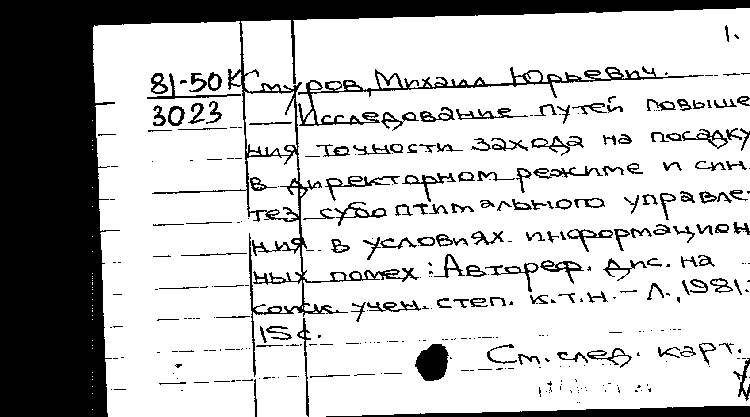 1.
81-50К Смуров, Михаил Юрьевич.
3023 Исследование путей повыше
ния точности захода на посадку
в директорном режиме и син
тез субоптимального управле-
ния в условиях информацион
ных помех: Автореф. дис. на
соиск. учен. степ. к.т.н. - Л., 1981.
15с.
См. след. карт.